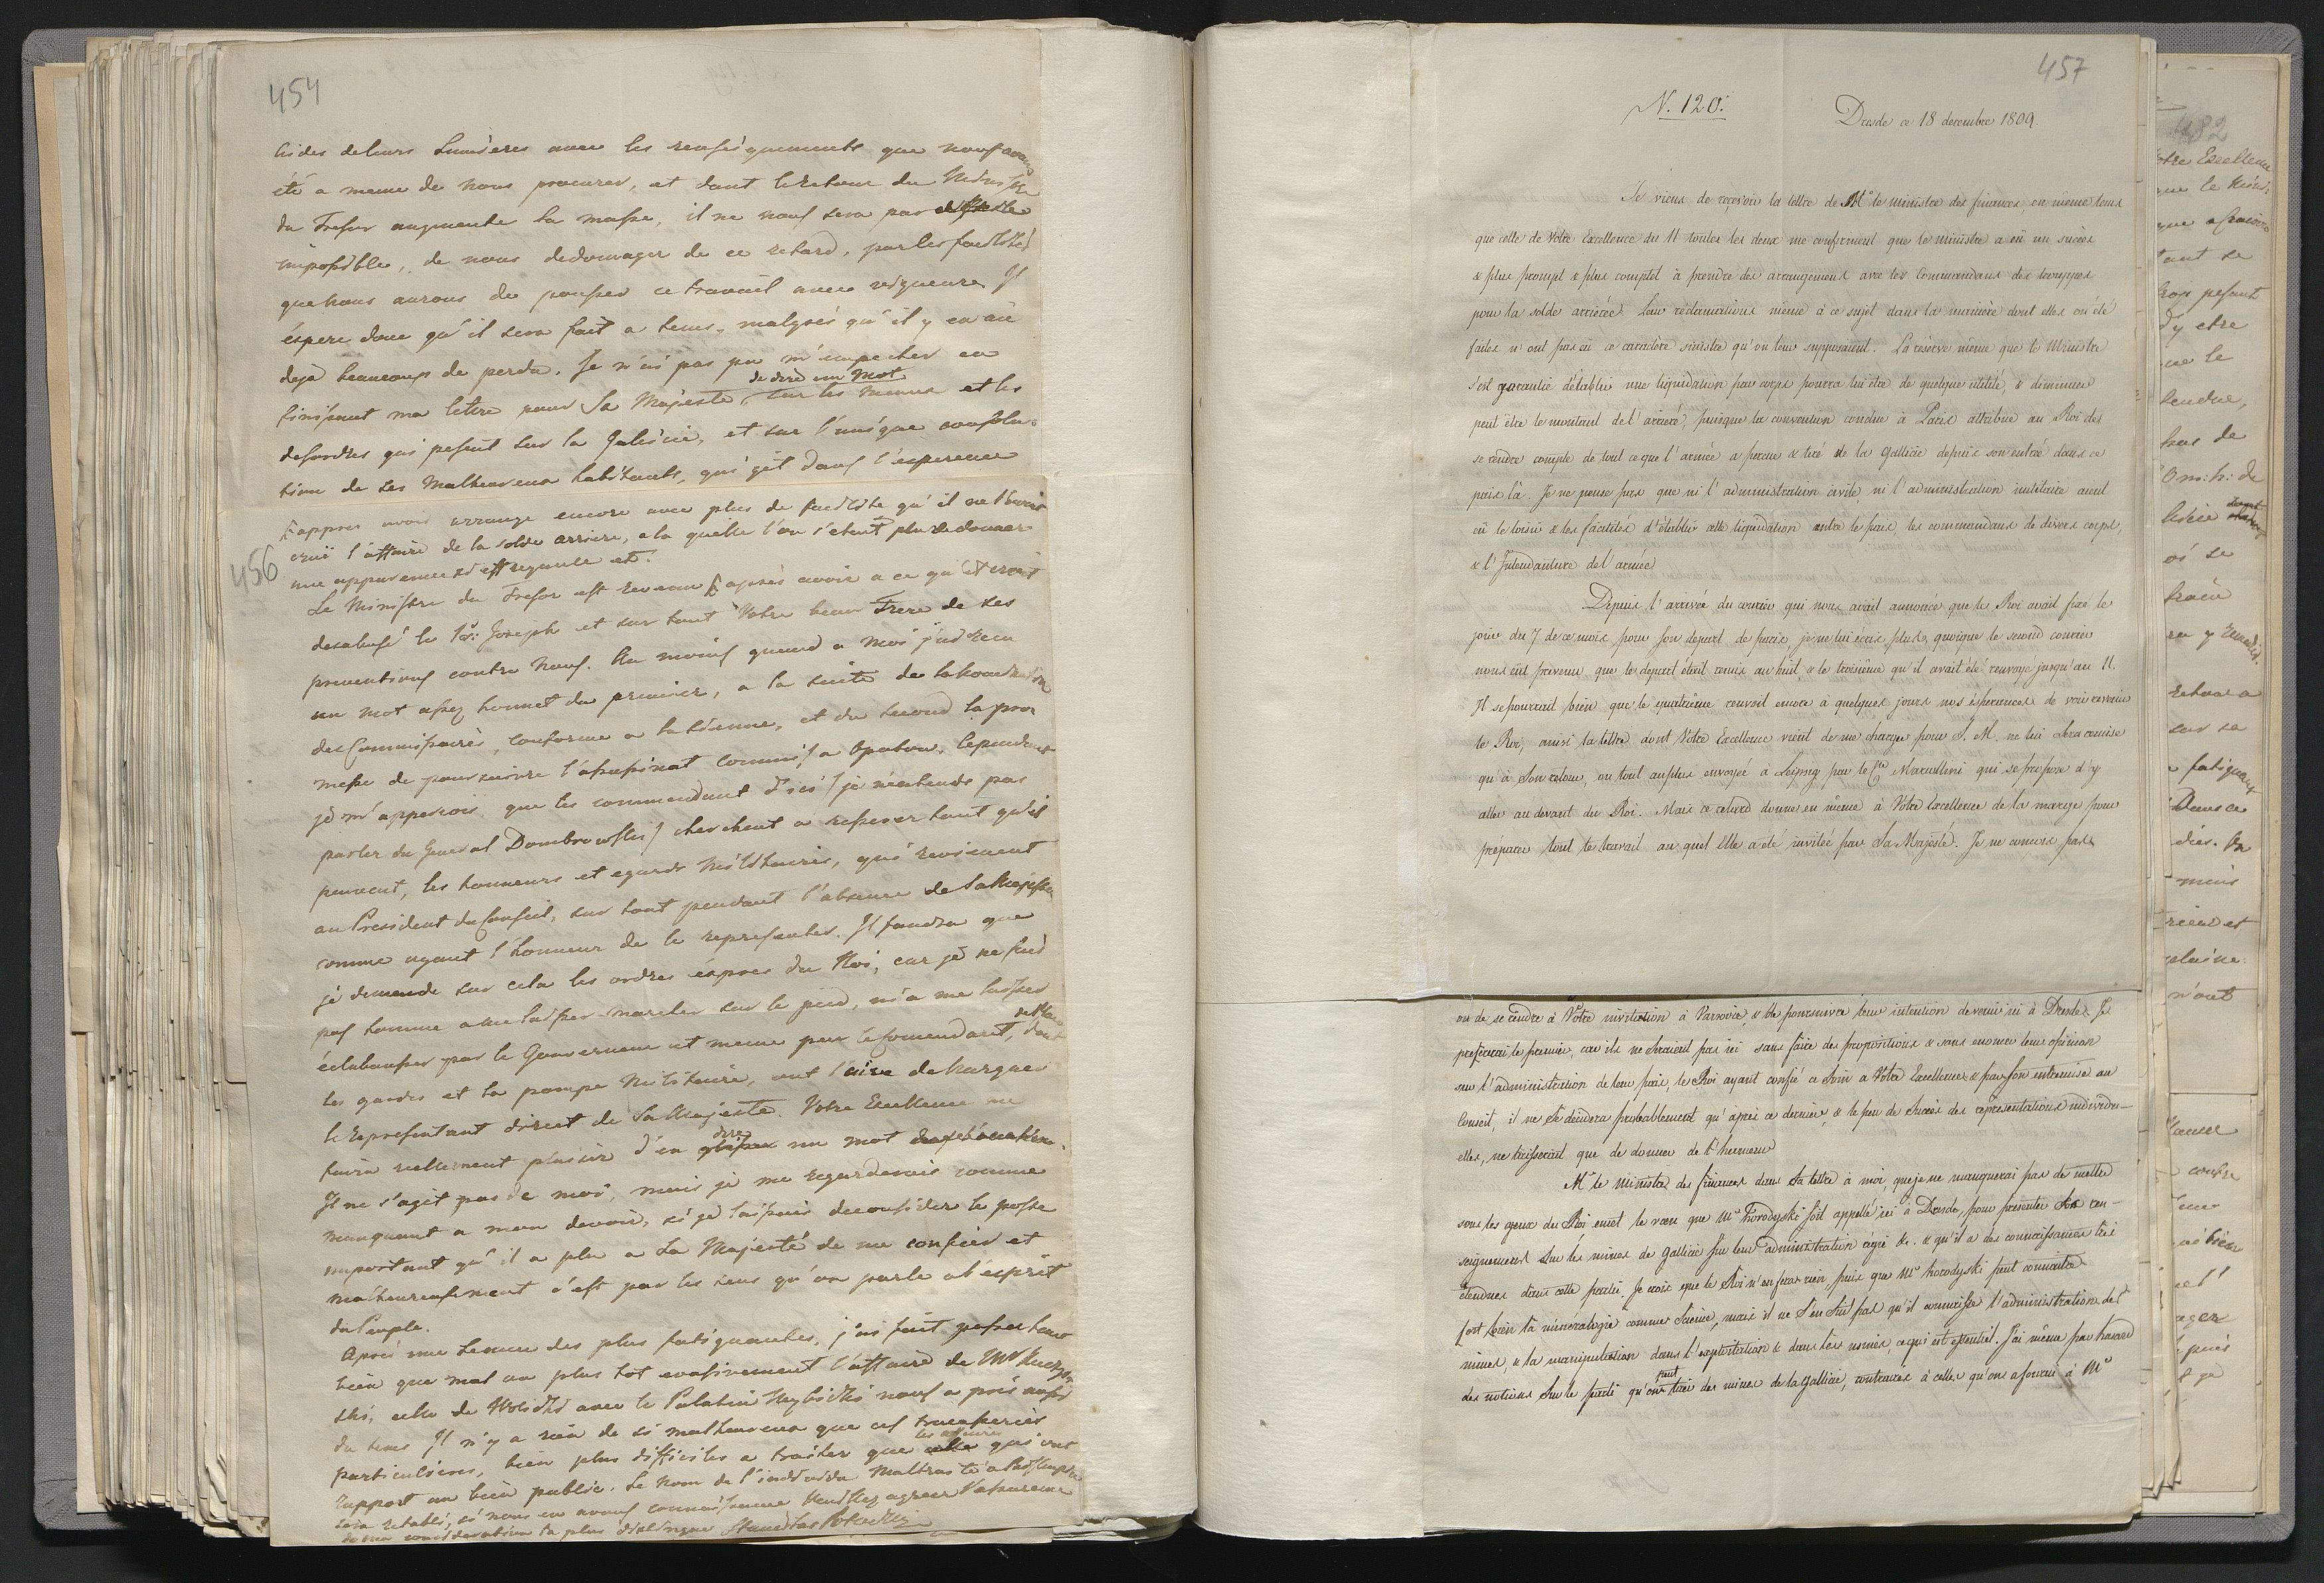 454
aides de leurs lumieres avec les renseignements que nous avons
été a meme de nous procurer, et dont le retour du Ministre
du Tresor augmente la masse, il ne nous sera pas
impossible, de nous dedomager de ce retard, par les facilités
que nous aurons de pousser ce travail avec vigueure. J
éspere donc qu'il sera fait a tems, malgrés qu'il y en aie
deja beaucoup de perdu. Je n'ai pas pu m'empecher en
de dire un mot
finissant ma lettre pour Sa Majesté sur les maux et les
desordres qui pesent sur la Galicie, et sur l'unique consola-
tion de ses malheureux habitants, qui git dans l'esperence
appres avoir arrangé encore avec plus de facilité qu'il ne l'avoit
cruë l'affaire de la solde arriere, a la quelle l'on s'etait plu de donner
456
une apparence
Le Ministre du Tresor est revenu après avoir a ce qu'il croit
desabusé le Pce Joseph et sur tout Votre beau Frere de ses
preventions contre nous. Au moins quand a moi j'ai recu
un mot assez honnet du premier, a la suite de la
des Commissaires, conforme a la sienne, et du second la pro
messe de poursuivre l'assassinat commis a Opatow. Cependant
je m'apperçois, que les commendant d'ici / je n'entends pas
parler du General Dombrowski / cherchent a refuser tant qu'ils
peuvent, les honneurs et egards Militaires, qui reviennent
au President du Conseil, sur tout pendant l'absence de Sa Majesté
comme ayant l'honneur de le representer. Il faudra que
je demende sur cela les ordres exprès du Roi, car je ne suis
pas homme a me laisser marcher sur le pied, ni a me laisser
éclabousser par le Gouverneur et meme par le Comendant, dont
les gardes et la pompe Militaire, ont l'aire de narguer
le représentant direct de Sa Majesté. Votre Excellence me
dire
faira reellement plaisir d'en un mot
Il ne s'agit pas de moi, mais je me regarderais comme
manquant a mon devoir, si je laissais deconsiderer le poste
important qu'il a plu a Sa Majesté de me confier et
malheureusement c'est par les sens qu'on parle a l'esprit
du Peuple.
Après une seance des plus fatiguantes, j'ai fait passer tant
bien que mal ou plus tot evasivement l'affaire de Mr
ski, celle de Wolicki avec le Palatin nous a pris aussi
du tems. Il n'y a rien de si malheureux que ces tracasseries
les affaires
particulieres, bien plus difficiles a traiter que qui ont
rapport au bien public. Le nom de l'individu maltraité a
sera retabli, si nous en avons connaissance Veuillez agreer l'assurance
de ma consideration la plus distingué Stanislas Potocki
457
N. 120.
Dresde ce 18 decembre 1809.
Je viens de reçevoir la lettre de Mr le ministre des finances, en même tems
que celle de Votre Excellence du 11 toutes les deux me confirment que le ministre a eû un succès
& plus prompt & plus complet à prendre des arrangemens avec les Commandans des trouppes
pour la solde arriérée. Leur réclamations même à ce sujet dans la manière dont elles on été
faites n'ont pas eû ce caractère sinistre qu'on leur supposaient. La reserve même que le Ministre
s'est garantie d'établir une liquidation par corps pourra lui être de quelque utilité, & diminuer
peut être le montant de l'arrieré, puisque la convention conclue à Paris attribue au Roi des
se rendre compte de tout ce que l'armée a percue & tiré de la Gallicie depuis son entrée dans ce
païs là. Je ne pense pas que ni l'administration civile, ni l'administration militaire aient
eû le loisir & les facilités d'établir cette liquidation entre le païs, les commandans de divers corps,
& l'Intendanture de l'armée.
Depuis l'arrivée du courier qui nous avait annoncée que le Roi avait fixé le
jour du 7 de ce mois pour son depart de paris, je ne lui écris plus, quoique le second courier
nous eût prevenu que le depart était remis au huit, & le troisième qu'il avait été renvoyé jusqu'au 11.
Il se pourrait bien que le quatrième renvoit encore à quelques jours nos ésperances de voir revenir
le Roi, ainsi la lettre dont Votre Excellence vient de me charger pour S. M. ne lui sera remise
qu'à Son retour, ou tout au plus envoyée à Leipzig par le Cte Marcollini qui se propose d'y
aller au devant du Roi. Mais ce retard donne en même à Votre Excellence de la marge pour
préparer tout le travail au quel Elle a été invitée par Sa Majésté. Je ne connois pas
ou de se rendre à Votre invitation à Varsovie, & de poursuivre leur intention de venir ici à Dresde. Je
preférerai le premier, car ils ne seraient pas ici sans faire des propositions & sans enoncer leur opinion
sur l'administration de leur païs, le Roi ayant confié ce soin a Votre Excellence & par son entremise au
Conseil, il ne se decidera probablement qu'après ce dernier, & le peu de succès des representations individu-
elles, ne laisserait que de donner de l'humeur
Mr le Ministre des finances dans sa lettre à moi, que je ne manquerai pas de mettre
sous les yeux du Roi emet le vœu que Mr Horodyski soit appellé ici à Dresde, pour presenter des ren-
seignemens sur les mines de Gallicie sur leur administration regie &c. & qu'il a des connaissances très
étendues dans cette partie. Je crois que le Roi n'en fera rien, puis que Mr horodyski peut connaitre
fort bien la mineralogie comme science, mais il ne s'en suit pas qu'il connaisse l'administration des
mines, & la manipulation dans l'exploitation & dans les usines, ce qui est essentiel. J'ai même par hasard
peut
des notions sur le parti qu'on tirer des mines de la gallicie, contraires à celles qu'on a fourni à Mr
482
otre Excellence
que le
tant se
trop pesant
d'y etre
ne le
tendre,
pas de
dont
où se
retour a
sur sa
fatiguant
Dans ce
rieux et
plaine
n'ont
contre
ager
t je